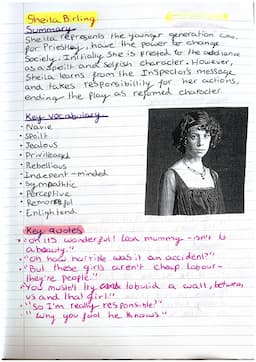 Sheila Birling
Summary
Sheila represents the younger generation can,
for Priestley, have the power to change
Society. Initially she is prested to the audiance
as a spoilt and selfish character. However,
Sheila learns from the Inspector's message
and takes responsibility for her actions,
ending the play as reformed character.
Key vocabulary
• Navie
• Spoilt
• Jealous
• Privileaged
• Rebellious
• Indepent-minded
• Sympathtic
• Perceptive
• Remorseful
• Enlightend
Key quotes
"Oh its wonderful! Look mummy - isn't it
a beauty."
"Oh how horrible was it an accident?"
"But these girls aren't cheap labour -
they're people."
"You musn't try and a wall, between
us and that girl."
"So I'm really responsible?"
"Why you fool he knows."